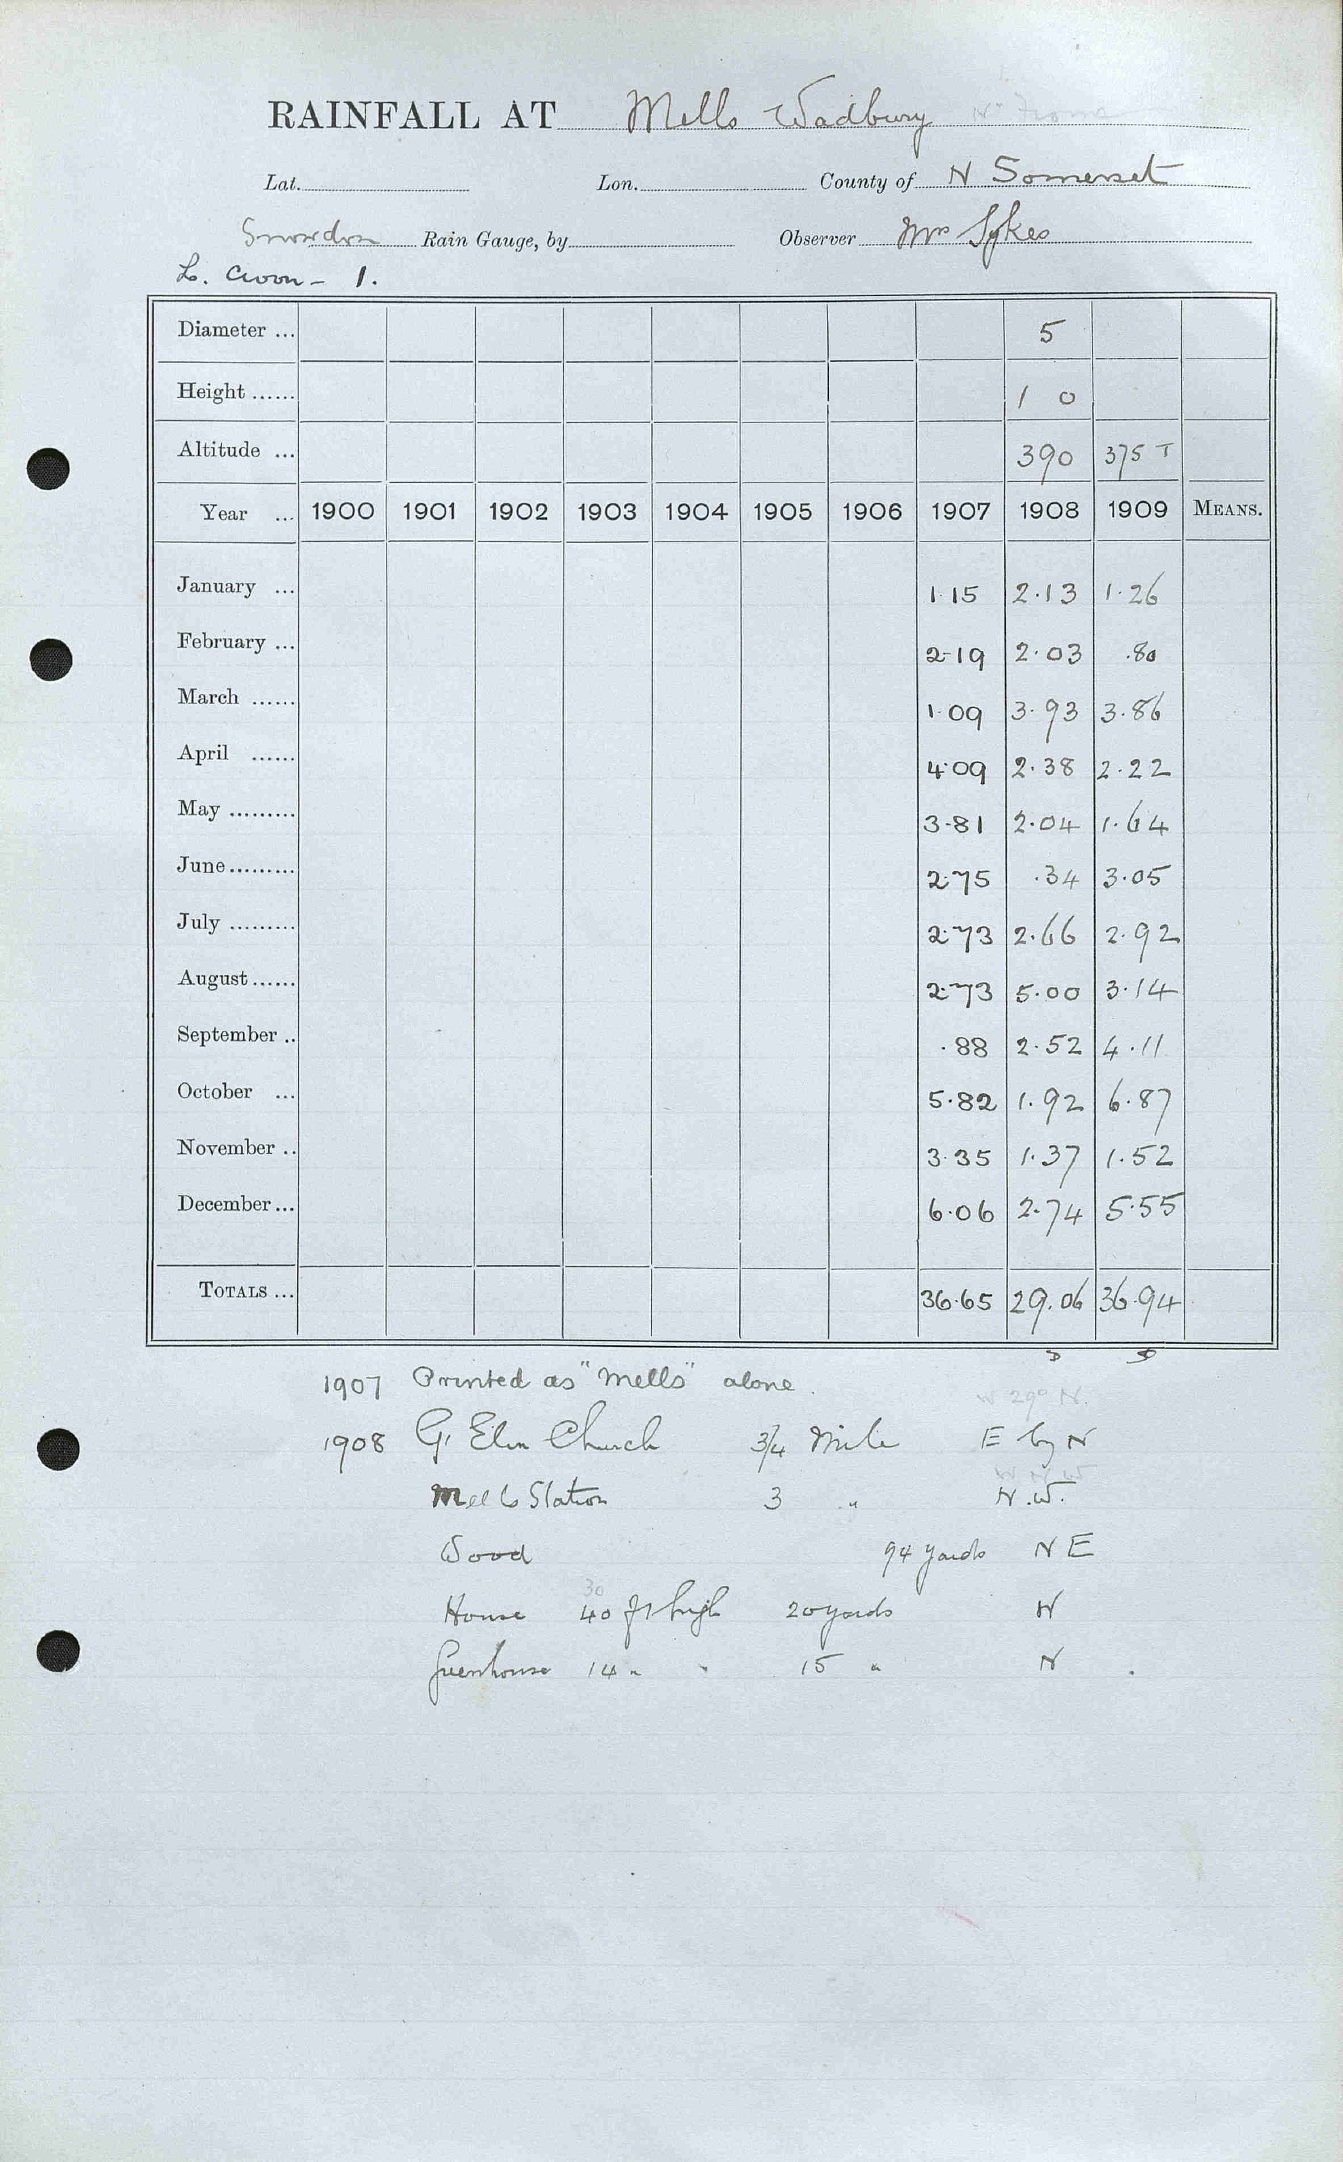 RAINFALL AT Mells Wadbury Nr Frome
Lat. Lon. County of N Somerset
Snowdon Rain Gauge, by Observer Mrs Sykes
L. Avon - 1.
Diameter ... 5
Height ...... 1 0
Altitude ... 390 375 T
Year ... 1900 1901 1902 1903 1904 1905 1906 1907 1908 1909 MEANS.
January ... 1.15 2.13 1.26
February ... 2.19 2.03 .80
March ...... 1.09 3.93 3.86
April ...... 4.09 2.38 2.22
May ......... 3.81 2.04 1.64
June ......... 2.75 .34 3.05
July ......... 2.73 2.66 2.92
August ...... 2.73 5.00 3.14
September .. .88 2.52 4.11
October ... 5.82 1.92 6.87
November .. 3.35 1.37 1.52
December ... 6.06 2.74 5.55
TOTALS ... 36.65 29.06 36.94
1907 Printed as "Mells" alone.
W 29° N.
1908 Gt Elm Church 3/4 Mile E by N
W N W
Mells Station 3 " N.W.
Wood 94 yards N E
30
House 40 ft high 20 yards N
Greenhouse 14 " " 15 " N